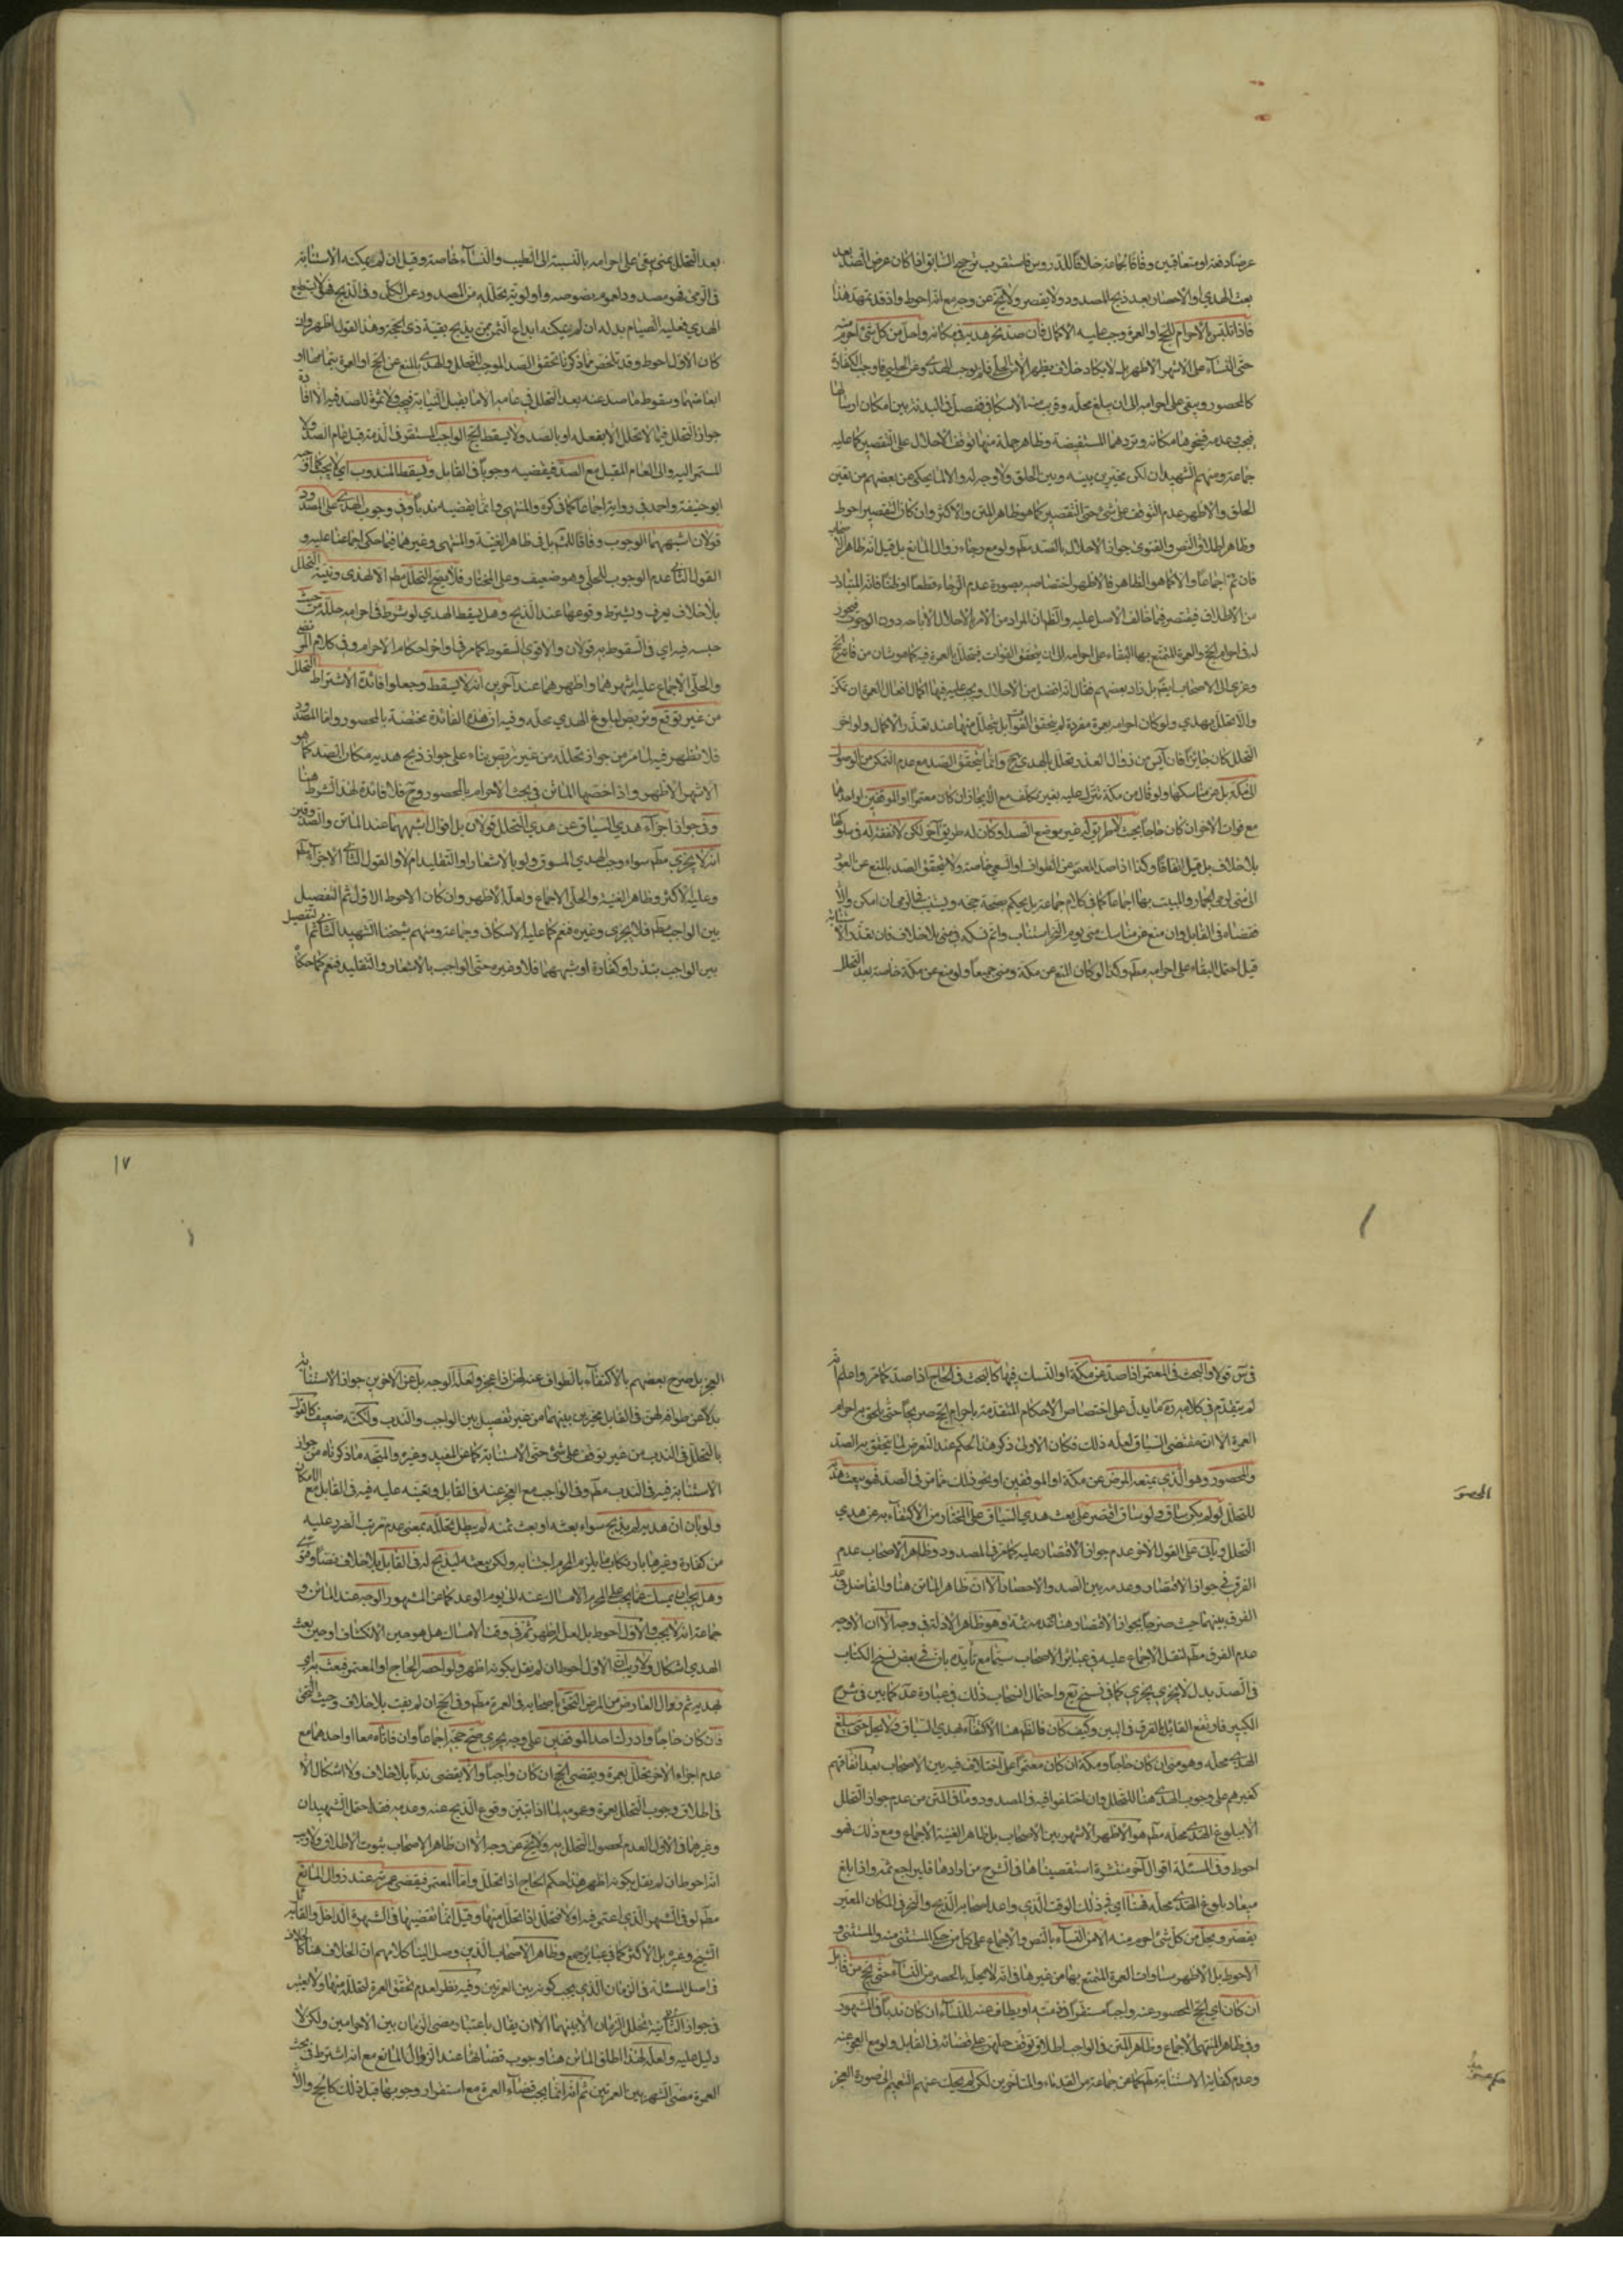 عرضا دفعة او متعاقبين وفاقا لجماعة خلافا للدروس فاستقرب ترجيح السابق اذا كان عرض الصد بعد
بعث الهدي او الاحصار بعد ذبح المصدود ولا يقصر ولا يخ عن وجه مع انه احوط واذ قد تمهد هذا
فاذا تلبس بالاحرام للحج او العمرة وجب عليه الاكمال فان صد نحر هديه في مكانه واحل من كل شئ احرم منه
حتى النساء على الاشهر الاظهر بل لا يكاد خلاف يظهر الا من الحلبي فلم يوجب الهدي وعن الحلبي فاوجب
كالمحصور ويبقى على احرامه الى ان يبلغ محله وقريب منه الاسكافي ففصل في البدنة بين امكان ارسالها
فيجب وعدمه فينحرها مكانه وتردهما المستفيضة وظاهر جملة منها توقف الاحلال على التقصير كما عليه
جماعة ومنهم الشهيدان لكن مخيرين بينه وبين الحلق ولا وجه له والا لما يحكى عن بعضهم من تعين
الحلق والاظهر عدم التوقف على شئ حتى التقصير كما هو ظاهر المتن والاكثر وان كان التقصير احوط
وظاهر اطلاق النص والفتوى جواز الاحلال بالصد مطم ولو مع رجاء زوال المانع بل قيل انه ظاهر الاصحاب
فان تم اجماعا والا كما هو الظاهر فالاظهر اختصاصه بصورة عدم الرجاء قطعا او ظنا فانه المتبادر
من الاطلاق فيقتصر فيما خالف الاصل عليه والظ ان المراد من الامر بالاحلال الاباحة دون الوجوب فيجوز
له في احرام الحج والعمرة المتمتع بها البقاء على احرامه الى ان يتحقق الفوات فيتحلل بالعمرة فيه كما هو شان من فاته الحج
وعزي الى الاصحاب ايضم بل زاد بعضهم فقال انه افضل من الاحلال ويجب عليه فيها اكمال افعال العمرة ان تمكن
والا تحلل بهدي ولو كان احرامه بعمرة مفردة لم يتحقق الفوات بل يتحلل منها عند تعذر الاكمال ولو اخر
التحلل كان جائزا فان آيس من زوال العذر تحلل بالهدي ح وانما يتحقق الصد مع عدم التمكن من الوصول
الى مكة
مع فوات الاخر ان كان حاجا بحيث لا طريق له غير موضع الصد او كان له طريق آخر لكن لا نفقة له في سلوكها
بلا خلاف بل قيل اتفاقا وكذا اذا صد المعتمر عن الطواف او السعي خاصة ولا يتحقق الصد بالمنع من العود
الى منى لرمي الجمار والمبيت بها اجماعا كما في كلام جماعة بل يحكم بصحة حجه ويستنيب في الرمي ان امكن والا
قضاه في القابل وان منع عن مناسك منى يوم النحر استناب واتم نسكه وصح بلا خلاف فان تعذر الاستنابة
قيل احتمل البقاء على احرامه مطم وكذا لو كان المنع عن مكة ومنى جميعا ولو منع عن مكة خاصة بعد التحلل
بعد التحلل بمنى بقي على احرامه بالنسبة الى الطيب والنساء خاصة وقيل ان لم يمكنه الاستنابة
في الرمي فهو مصدود لعموم نصوصه واولوية تحلله من المصدود عن الكل وفي الذبح فهو لا يستطيع
الهدي فعليه الصيام بدله ان لم يمكنه ايداع الثمن ممن يذبح بقية ذي الحجة وهذا القول اظهر وان
كان الاول احوط وقد تلخص مما ذكرنا تحقق الصد الموجب للتحلل بالهدي بالمنع عن الحج او العمرة بتمامها او
ابعاضهما وسقوط ما صد عنه بعد التحلل في عامه الا ما يقبل النيابة فيجب ولا ثمرة للصد فيه الا افادة
جواز التحلل فيما لا تحلل الا بفعله او بالصد ولا يسقط الحج الواجب المستقر في الذمة قبل عام الصد ولا
المستمر اليه والى العام المقبل مع الصد فيقضيه وجوبا في القابل ويسقط المندوب
ابو حنيفة واحمد في رواية اجماعا كما في كره والمنتهى وانما يقضيه ندبا وفي وجوب الهدي على المصدود
قولان اشبههما الوجوب وفاقا للاكثر بل في ظاهر الغنية والمنتهى وغيرهما فيما حكي اجماعنا عليه و
القول الثاني عدم الوجوب للحلي وهو ضعيف وعلى المختار فلا يصح التحلل مطم الا بالهدى ونية التحلل
بلا خلاف يعرف ويشترط وقوعها عند الذبح وهل يسقط الهدي لو شرط في احرامه حله من حيث
حبسه فيه اي في السقوط به قولان والاقوى السقوط كما مر في اواخر احكام الاحرام وفي كلام المرتضى
والحلي الاجماع عليه اشهرهما واظهرهما عند آخرين انه لا يسقط وجعلوا فائدة الاشتراط التحلل
من غير توقع وتربص لبلوغ الهدي محله وفيه ان هذه الفائدة مختصة بالمحصور واما المصدود
فلا تظهر فيه لما مر من جواز تحلله من غير تربص بناء على جواز ذبح هديه مكان الصد كما هو
الاشهر الاظهر واذا خصها الماتن في بحث الاحرام بالمحصور وح فلا فائدة لهذا الشرط هنا
وفي جواز اجزاء هدي السياق عن هدي التحلل قولان بل اقوال اشبههما عند الماتن والصدوقين
انه لا يجزي مطم سواء وجب الهدي المسوق ولو بالاشعار او التقليد ام لا والقول الثاني الاجزاء مطم
وعليه الاكثر وظاهر الغنية والحلي الاجماع ولعله الاظهر وان كان الاحوط الاول ثم التفصيل
بين الواجب مطم فلا يجزي وغيره فنعم كما عليه الاسكافي وجماعة ومنهم شيخنا الشهيد الثاني ثم التفصيل
بين الواجب بنذر او كفارة او شبههما فلا وغيره حتى الواجب بالاشعار والتقليد فنعم كما حكاه
في س قولا والبحث في المعتمر اذا صد عن مكة او النسك فيها كالبحث في الحاج اذا صد كما مر واعلم انه
لم يتقدم في كلامه ره ما يدل على اختصاص الاحكام المتقدمة باحرام الحج صريحا حتى يلحق به احرام
العمرة الا ان مقتضى السياق لعله ذلك فكان الاولى ذكر هذا الحكم عند التعرض لما يتحقق به الصد
والمحصور وهو الذي يمنعه المرض عن مكة او الموقفين او نحو ذلك مما مر في الصد فهو يبعث هديه
للتحلل لو لم يكن ساق ولو ساق اقتصر على بعث هدي السياق على المختار من الاكتفاء به عن هدي
التحلل وياتي على القول الاخر عدم جواز الاقتصار عليه كما مر في المصدود وظاهر الاصحاب عدم
الفرق في جواز الاقتصار وعدمه بين الصد والاحصار الا ان ظاهر الماتن هنا والفاضل في عد
الفرق بينهما حيث صرحا بجواز الاقتصار هنا وعدمه ثمة وهو ظاهر الادلة في وجه الا ان الاوجه
عدم الفرق مطم لنقل الاجماع عليه في عبائر الاصحاب سيما مع تأيده بان في بعض نسخ الكتاب
في الصد بدل لا يجزي يجزي كما في نسخ يع واحتمال انسحاب ذلك في عبارة عد كما بين في شرح
الكبير فارتفع القائل بالفرق في البين وكيف كان فالظم هنا الاكتفاء بهدي السياق ولا يحل حتى يبلغ
الهدي محله وهو منى ان كان حاجا ومكة ان كان معتمرا على اختلاف فيه بين الاصحاب بعد اتفاقهم
كغيرهم على وجوب الهدي هنا للتحلل وان اختلفوا فيه في المصدود وما في المتن من عدم جواز التحلل
الا ببلوغ الهدي محله مطم هو الاظهر الاشهر بين الاصحاب بل ظاهر الغنية الاجماع ومع ذلك فهو
احوط وفي المسئلة اقوال آخر منتشرة استقصيناها في الشرح من ارادها فليراجع ثمه واذا بلغ
ميعاد بلوغ الهدي محله فهنا اي في ذلك الوقت الذي واعد اصحابه الذبح والنحر في المكان المعين
يقصر ويحل من كل شئ احرم منه الا من النساء بالنص والاجماع على كل من حكمي المستثنى منه والمستثنى و
الاحوط بل الاظهر مساوات العمرة المتمتع بها من غيرها في انه لا يحل بالحصر من النساء حتى يحج من قابل
ان كان اي الحج المحصور عنه واجبا مستقرا في ذمته او يطاف عنه للنساء ان كان ندبا في المشهور
وفي ظاهر المنتهى الاجماع وظاهر المتن في الواجب اطلاق توقف حلهن على قضائه في القابل ولو مع العجز عنه
وعدم كفاية الاستنابة مطم كما عن جماعة من القدماء والمتاخرين لكن لم يحك عنهم التعميم الى صورة العجز
المحصور
العجز بل صرح بعضهم بالاكتفاء بالطواف عنه لهن اذا عجز ولعله الوجه بل عن الآخرين جواز الاستنابة
بدلا عن طوافه لهن في القابل مخيرين بينهما من غير تفصيل بين الواجب والندب ولكنه ضعيف كالقول
بالتحلل في الندب من غير توقف على شئ حتى الاستنابة كما عن المفيد وغيره والمتجه ما ذكرناه من جواز
الاستنابة فيه في الندب مطم وفي الواجب مع العجز عنه في القابل وتعينه عليه فيه في القابل مع الامكان
ولو بان ان هديه لم يذبح سواء بعثه او بعث ثمنه لم يبطل تحلله بمعنى عدم ترتب الضرر عليه
من كفارة وغيرها بارتكاب ما يلزم المحرم اجتنابه ولكن يبعثه ليذبح له في القابل بلا خلاف نصا وفتوى
وهل يجب ان يمسك عما يجب على المحرم الامساك عنه الى يوم الوعد كما عن المشهور الوجه عند الماتن و
جماعة انه لا يجب والاول احوط بل لعله اظهر ثم في وقت الامساك هل هو حين الانكشاف او حين بعث
الهدي اشكال ولا ريب ان الاول احوط ان لم نقل بكونه اظهر ولو احصر الحاج او المعتمر فبعث
بهديه ثم زوال العارض من المرض التحق باصحابه في العمرة مطم وفي الحج ان لم يفت بلا خلاف وحيث التحق
فان كان حاجا وادرك احد الموقفين على وجه يجزي صح حجه اجماعا وان فاتاه معا او احدهما مع
عدم اجزاء الاخر تحلل بعمرة ويقضي الحج ان كان واجبا والا يقضى ندبا بلا خلاف ولا اشكال الا
في اطلاق وجوب التحلل بعمرة وعمومه لما اذا تبين وقوع الذبح عنه وعدمه فقد احتمل الشهيدان
وغيرهما في الاول العدم لحصول التحلل به ولا يخ عن وجه الا ان ظاهر الاصحاب ثبوت الاطلاق ولا ريب
انه احوط ان لم يقل بكونه اظهر هذا حكم الحاج اذا تحلل واما المعتمر فيقضي عمرته عند زوال المانع
مطم ولو في الشهر الذي اعتمر فيه اولا فتحلل اذا تحلل منها وقيل انما يقضيها في الشهر الداخل والقائل به
الشيخ وغيره بل الاكثر كما في عبائر جمع وظاهر الاصحاب الذين وصل الينا كلامهم ان الخلاف هنا كالخلاف
في اصل المسئلة في الزمان الذي يجب كونه بين العمرتين وفيه نظر لعدم تحقق العمرة لتحلله منها ولا يعتبر
في جواز الثانية تخلل الزمان الا بينهما الا ان يقال باعتبار مضي الزمان بين الاحرامين ولكن لا
دليل عليه ولعله لهذا اطلق الماتن هنا وجوب قضائها عند الزوال المانع مع انه اشترط في بحث
العمرة مضي الشهر بين العمرتين ثم انه انما يجب قضاء العمرة مع استقرار وجوبها قبل ذلك كالحج والا
١٧